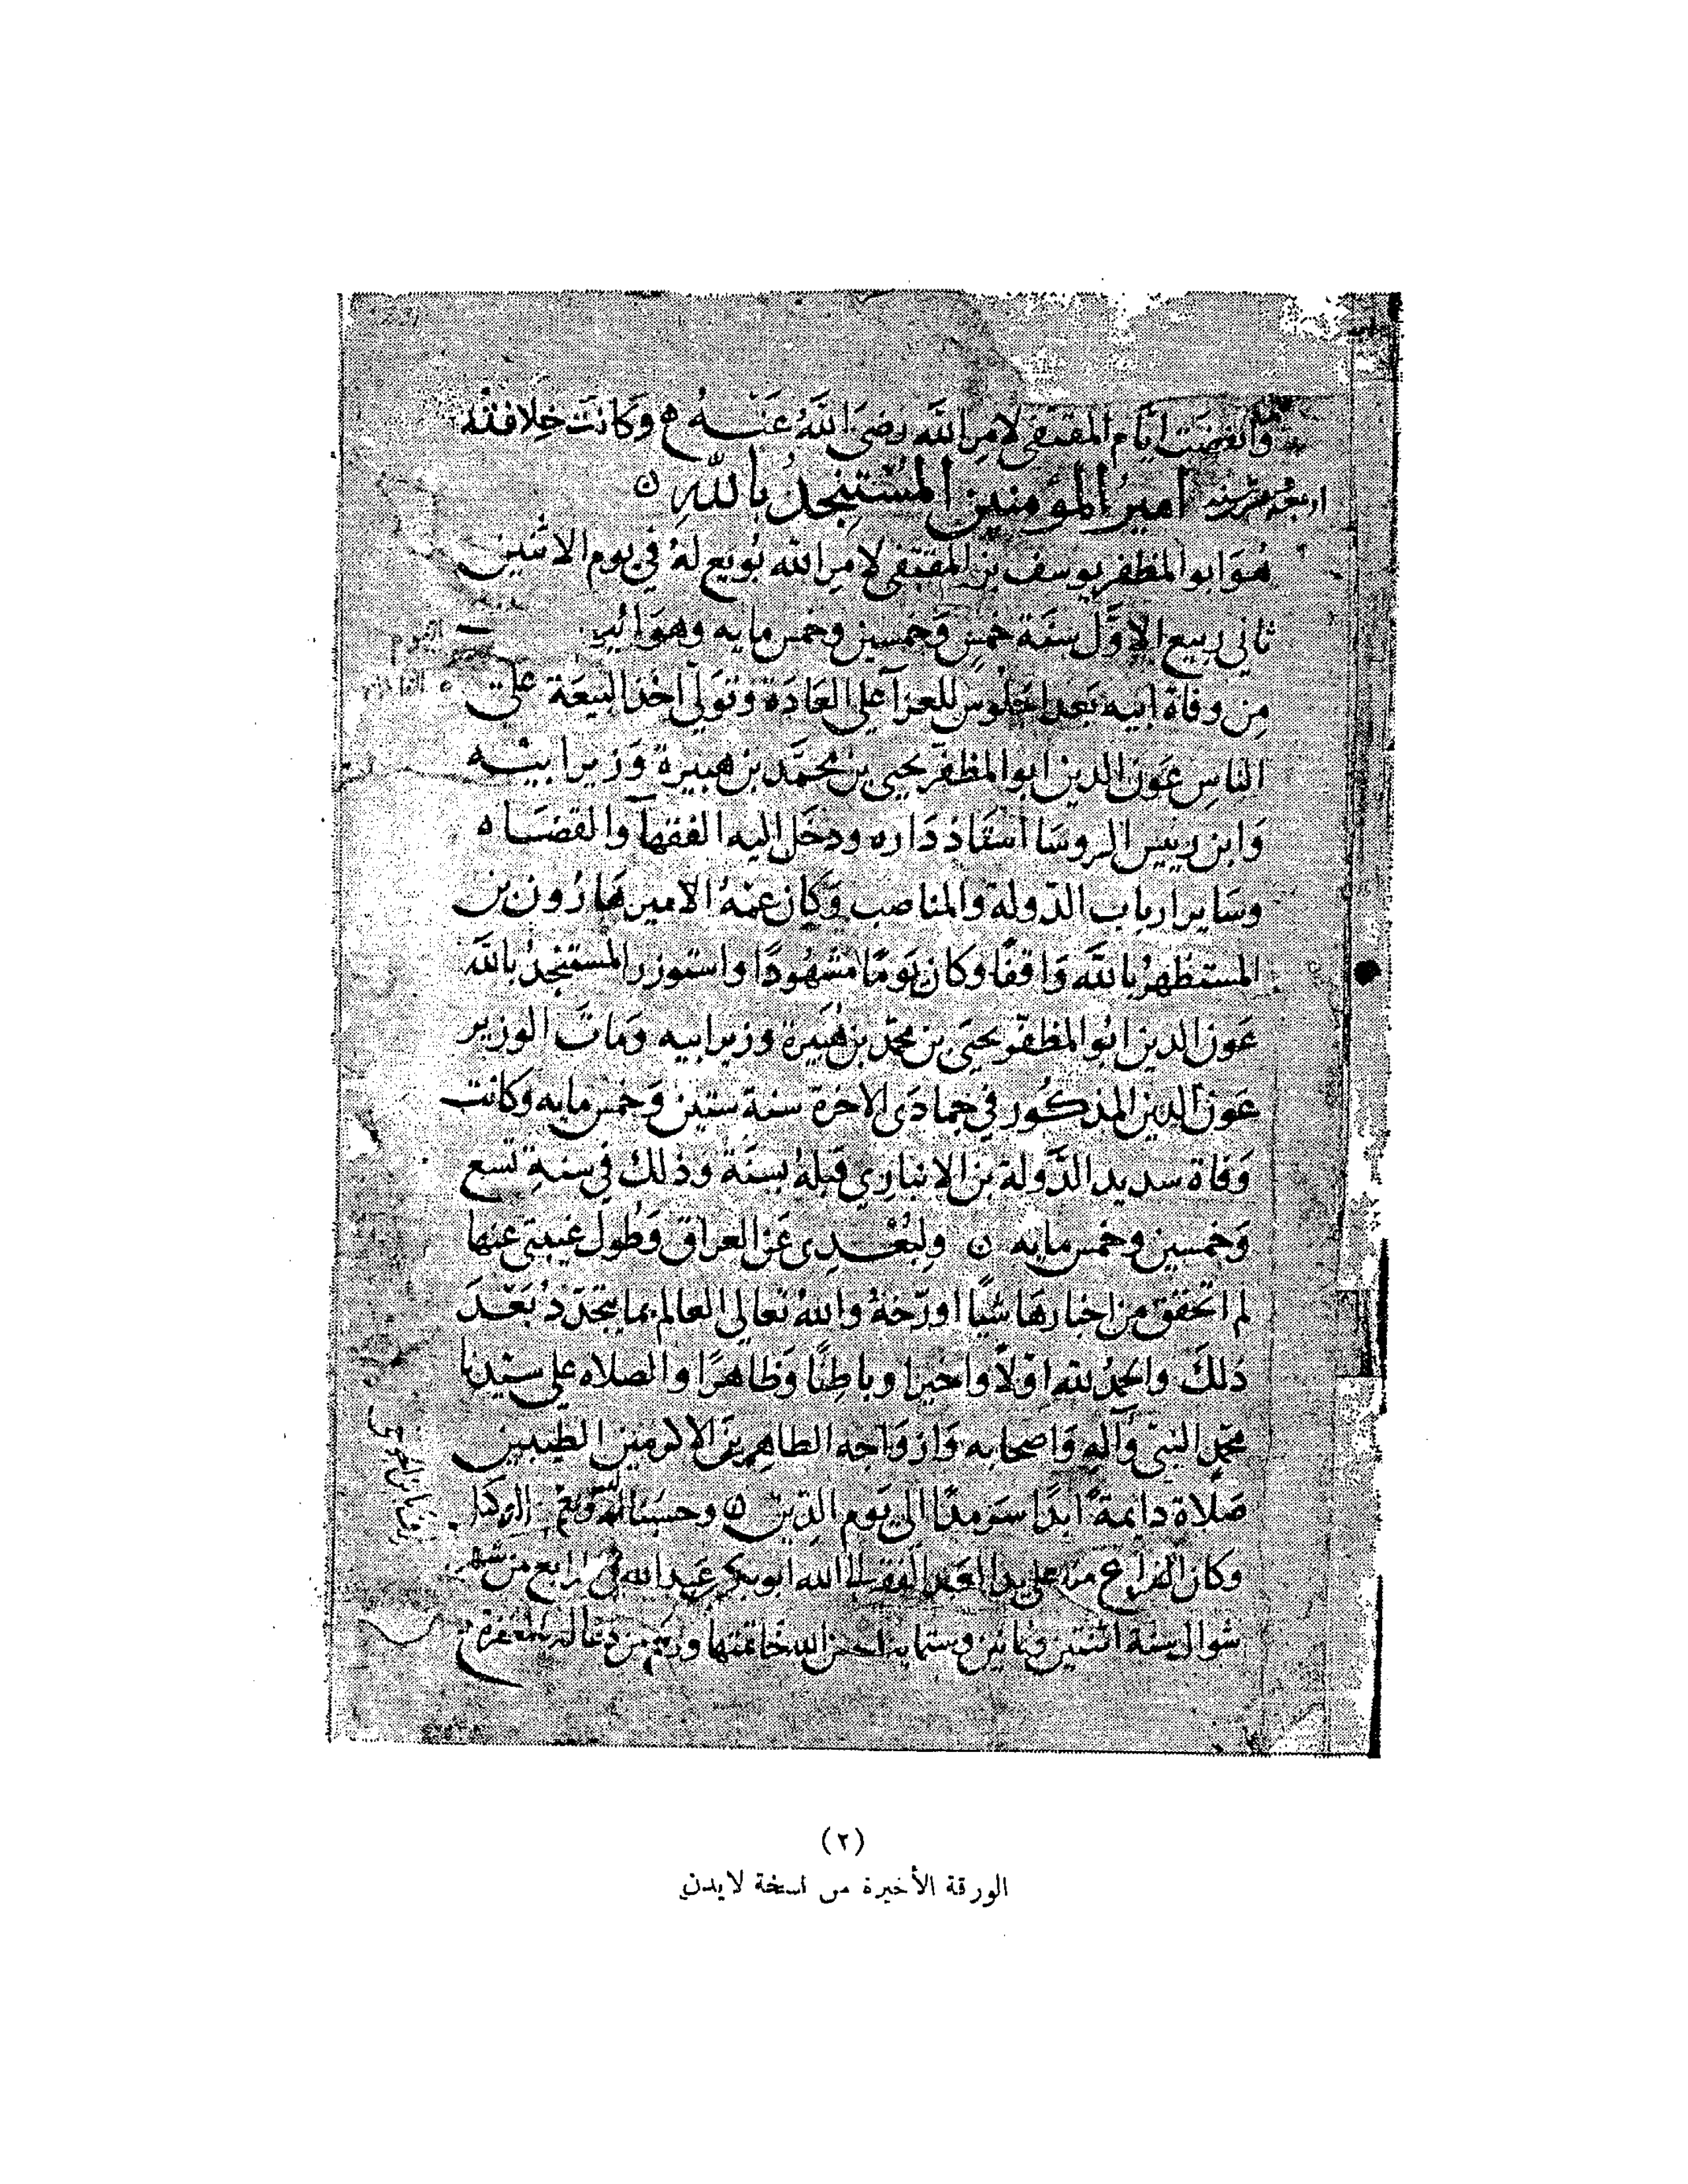 وانقضت ايام المقتفى لامر الله رضى الله عنه وكانت خلافته
امير المومنين المستنجد بالله
هو ابو المظفر يوسف بن المقتفى لامر الله بويع له في يوم الاثنين
ثاني ربيع الاول سنة خمس وخمسين وخمس مايه وهو
من وفاة ابيه بعد الجلوس للعزآ على العادة وتولى اخذ البيعة على
الناس عون الدين ابو المظفر يحيى بن محمد بن هبيرة وزير ابيه
وابن رييس الروسا استاذ داره ودخل اليه الفقهآ والقضاه
وساير ارباب الدولة والمناصب وكان عمه الامير هارون بن
المستظهر بالله واقفا وكان يوما مشهودا واستوزر المستنجد بالله
عون الدين ابو المظفر يحيى بن محمد بن هبيرة وزير ابيه ومات الوزير
عون الدين المذكور في جمادى الاخرة سنة ستين وخمس مايه وكانت
وفاة سديد الدولة بن الانباري قبله بسنة وذلك في سنة تسع
وخمسين وخمس مايه ولبعدى عن العراق وطول غيبتى عنها
لم اتحقق من اخبارها شيا اورخه والله تعالى العالم بما يتجدد بعد
ذلك والحمد لله اولا واخيرا وباطنا وظاهرا والصلاه على سيدنا
محمد النبى وآله واصحابه وازواجه الطاهرين الاكرمين الطيبين
صلاة دايمة ابدا سرمدا الى يوم الدين وحسبنا الله ونعم الوكيل
وكان الفراغ منه على يد العبد الفقير الى الله ابو بكر عبد الله في رابع من شهر
شوال سنة اثنتين وثمانين وستمايه احسن الله خاتمتها ورحم من دعا له بالمغفرة
(٢)
الورقة الأخيرة من نسخة لايدن